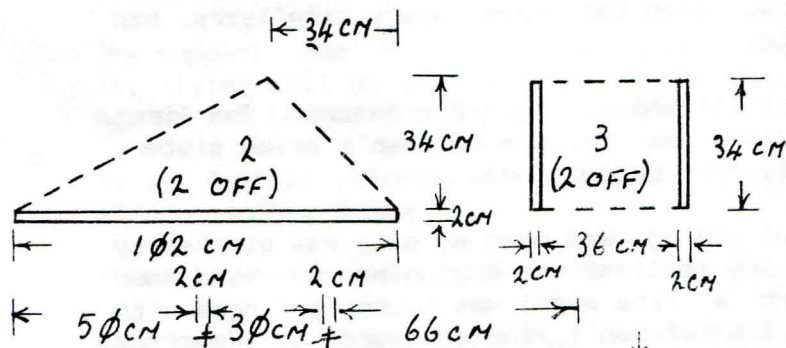 34 CM
2
(2 OFF)
34 CM
2CM
1φ2 CM
3
(2 OFF)
34 CM
36 CM
2CM
2CM
2CM
2CM
5φCM
3φCM
66 CM